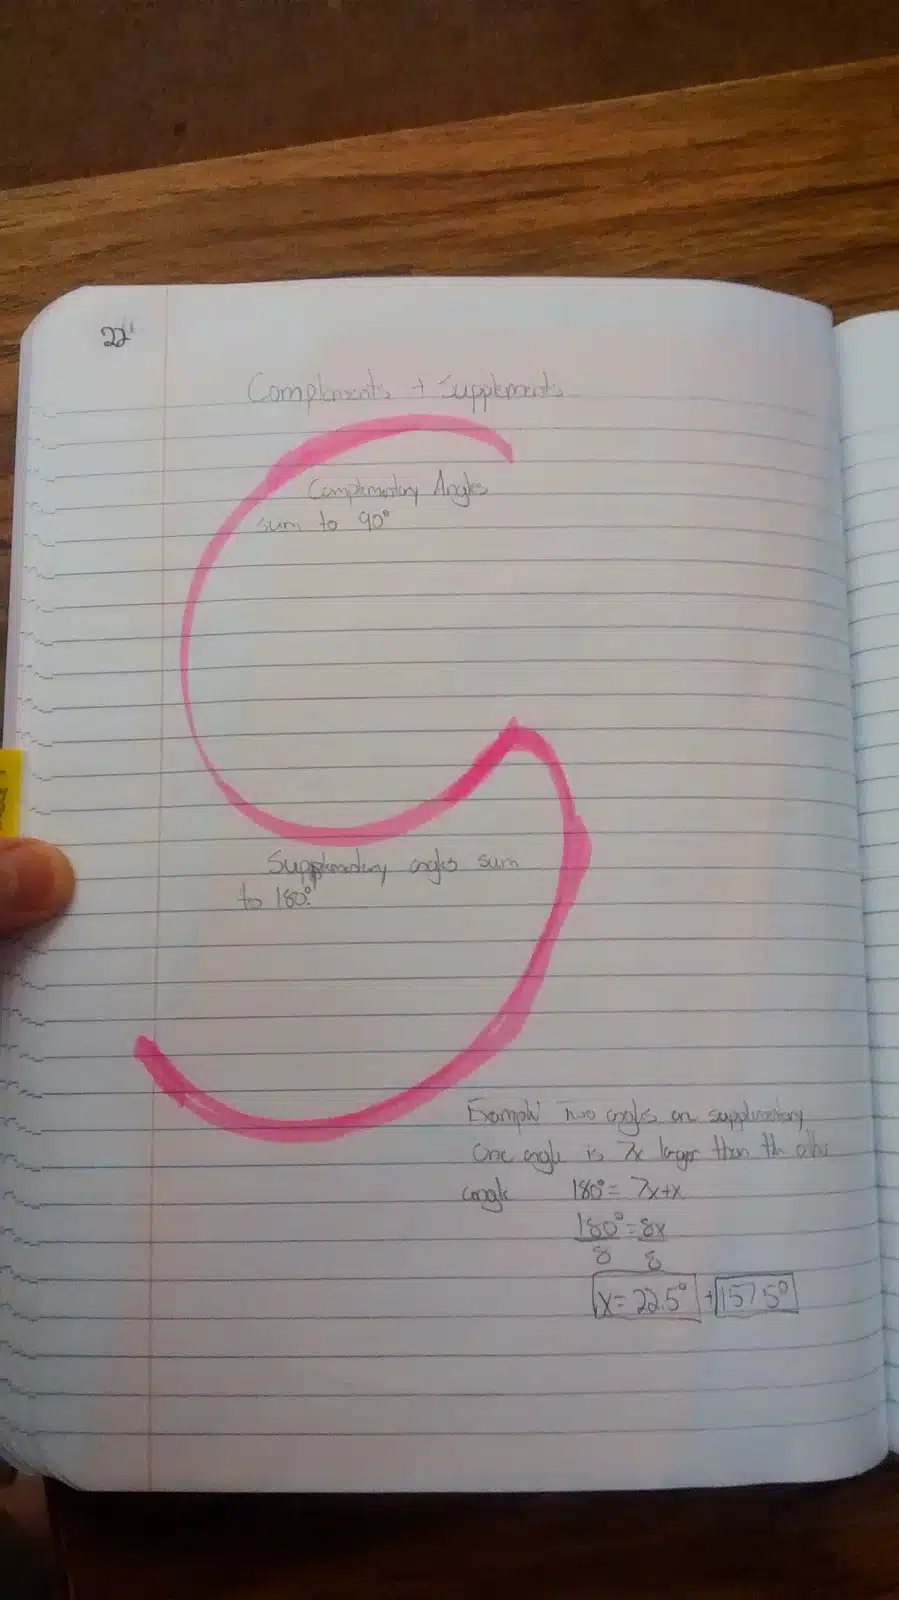 22
Complements + Supplements
Complimentary Angles
sum to 90°
Supplementary angles sum
to 180°.
Example! Two angles are supplimentary
One angle is 7x larger than the other
angle 180° = 7x+x
180° = 8x
8 8
x = 22.5° + 157.5°